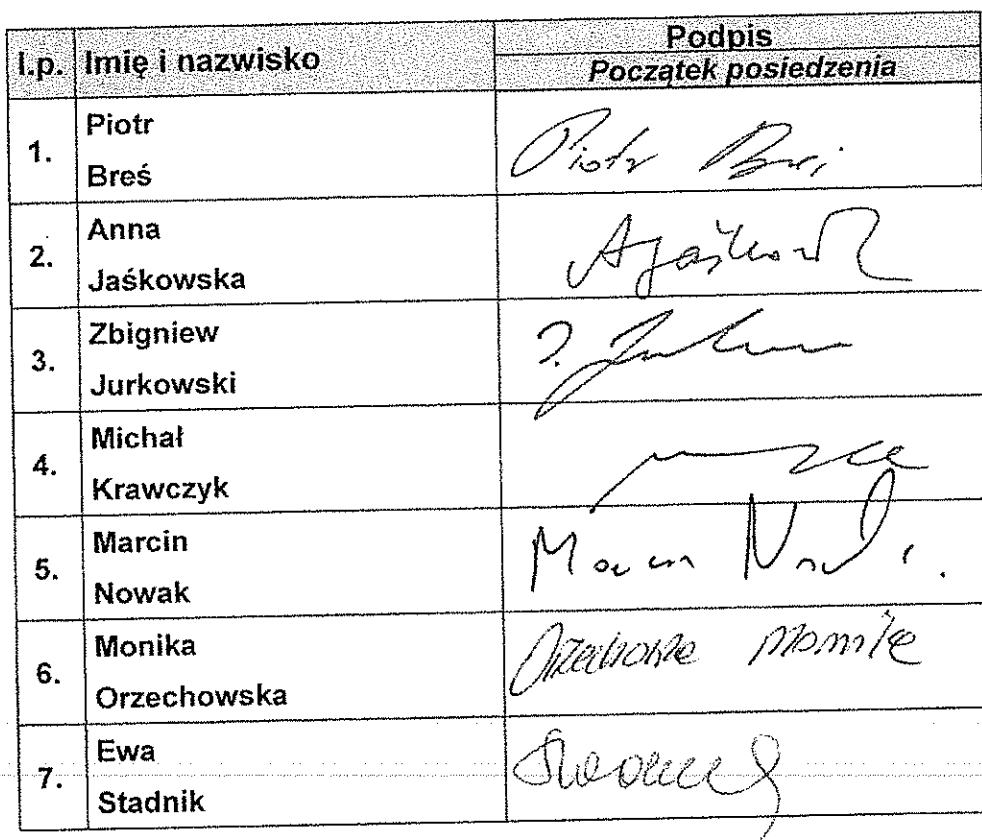 l.p. Imię i nazwisko Podpis
Początek posiedzenia
1. Piotr
Breś
Piotr Breś
2. Anna
Jaśkowska
AJaśkows
3. Zbigniew
Jurkowski
4. Michał
Krawczyk
5. Marcin
Nowak
Marcin Nowak
6. Monika
Orzechowska
Orzechowska Monika
7. Ewa
Stadnik